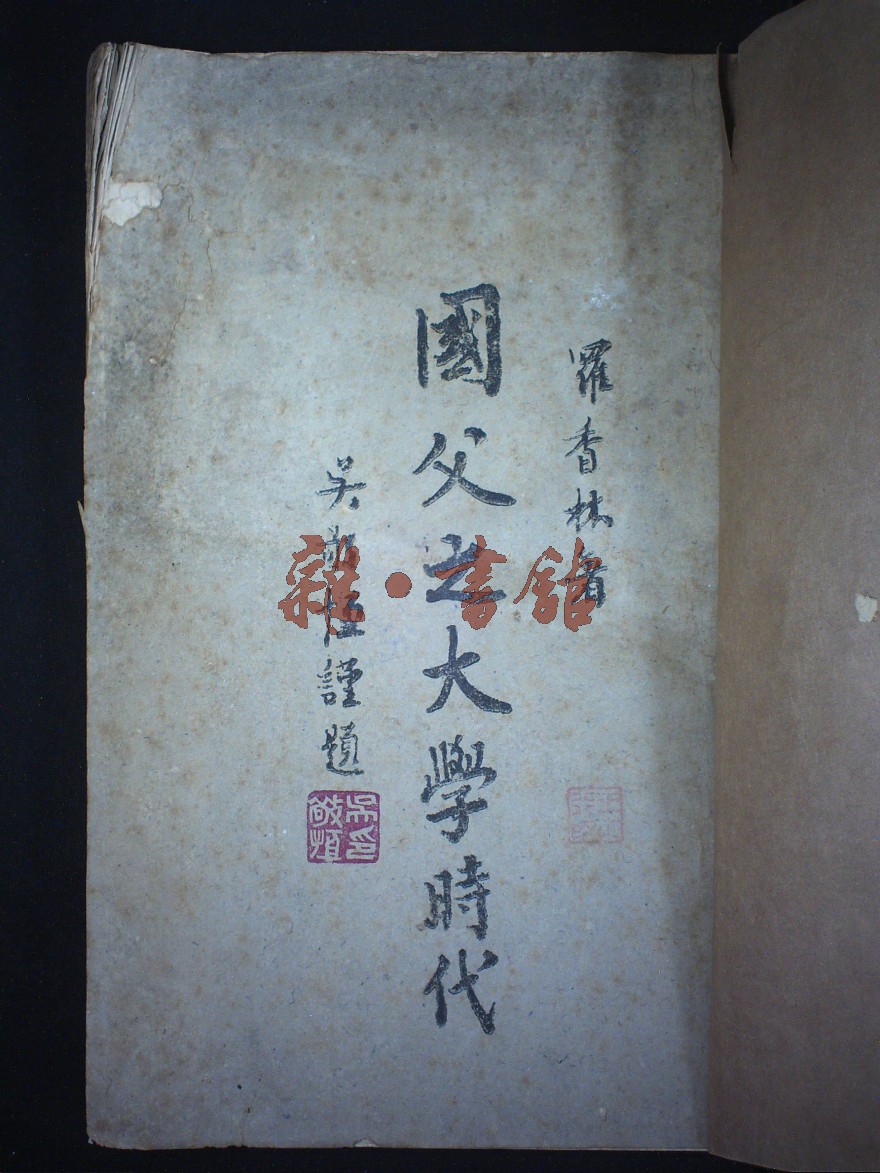 羅香林著
國父之大學時代
吳敬恆謹題
吳印敬恆
雜·書館